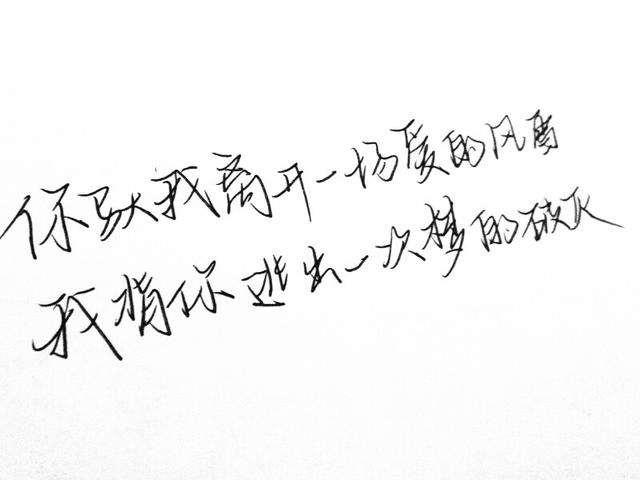 你驮我离开一场爱的风雪
我背你逃出一次梦的破灭